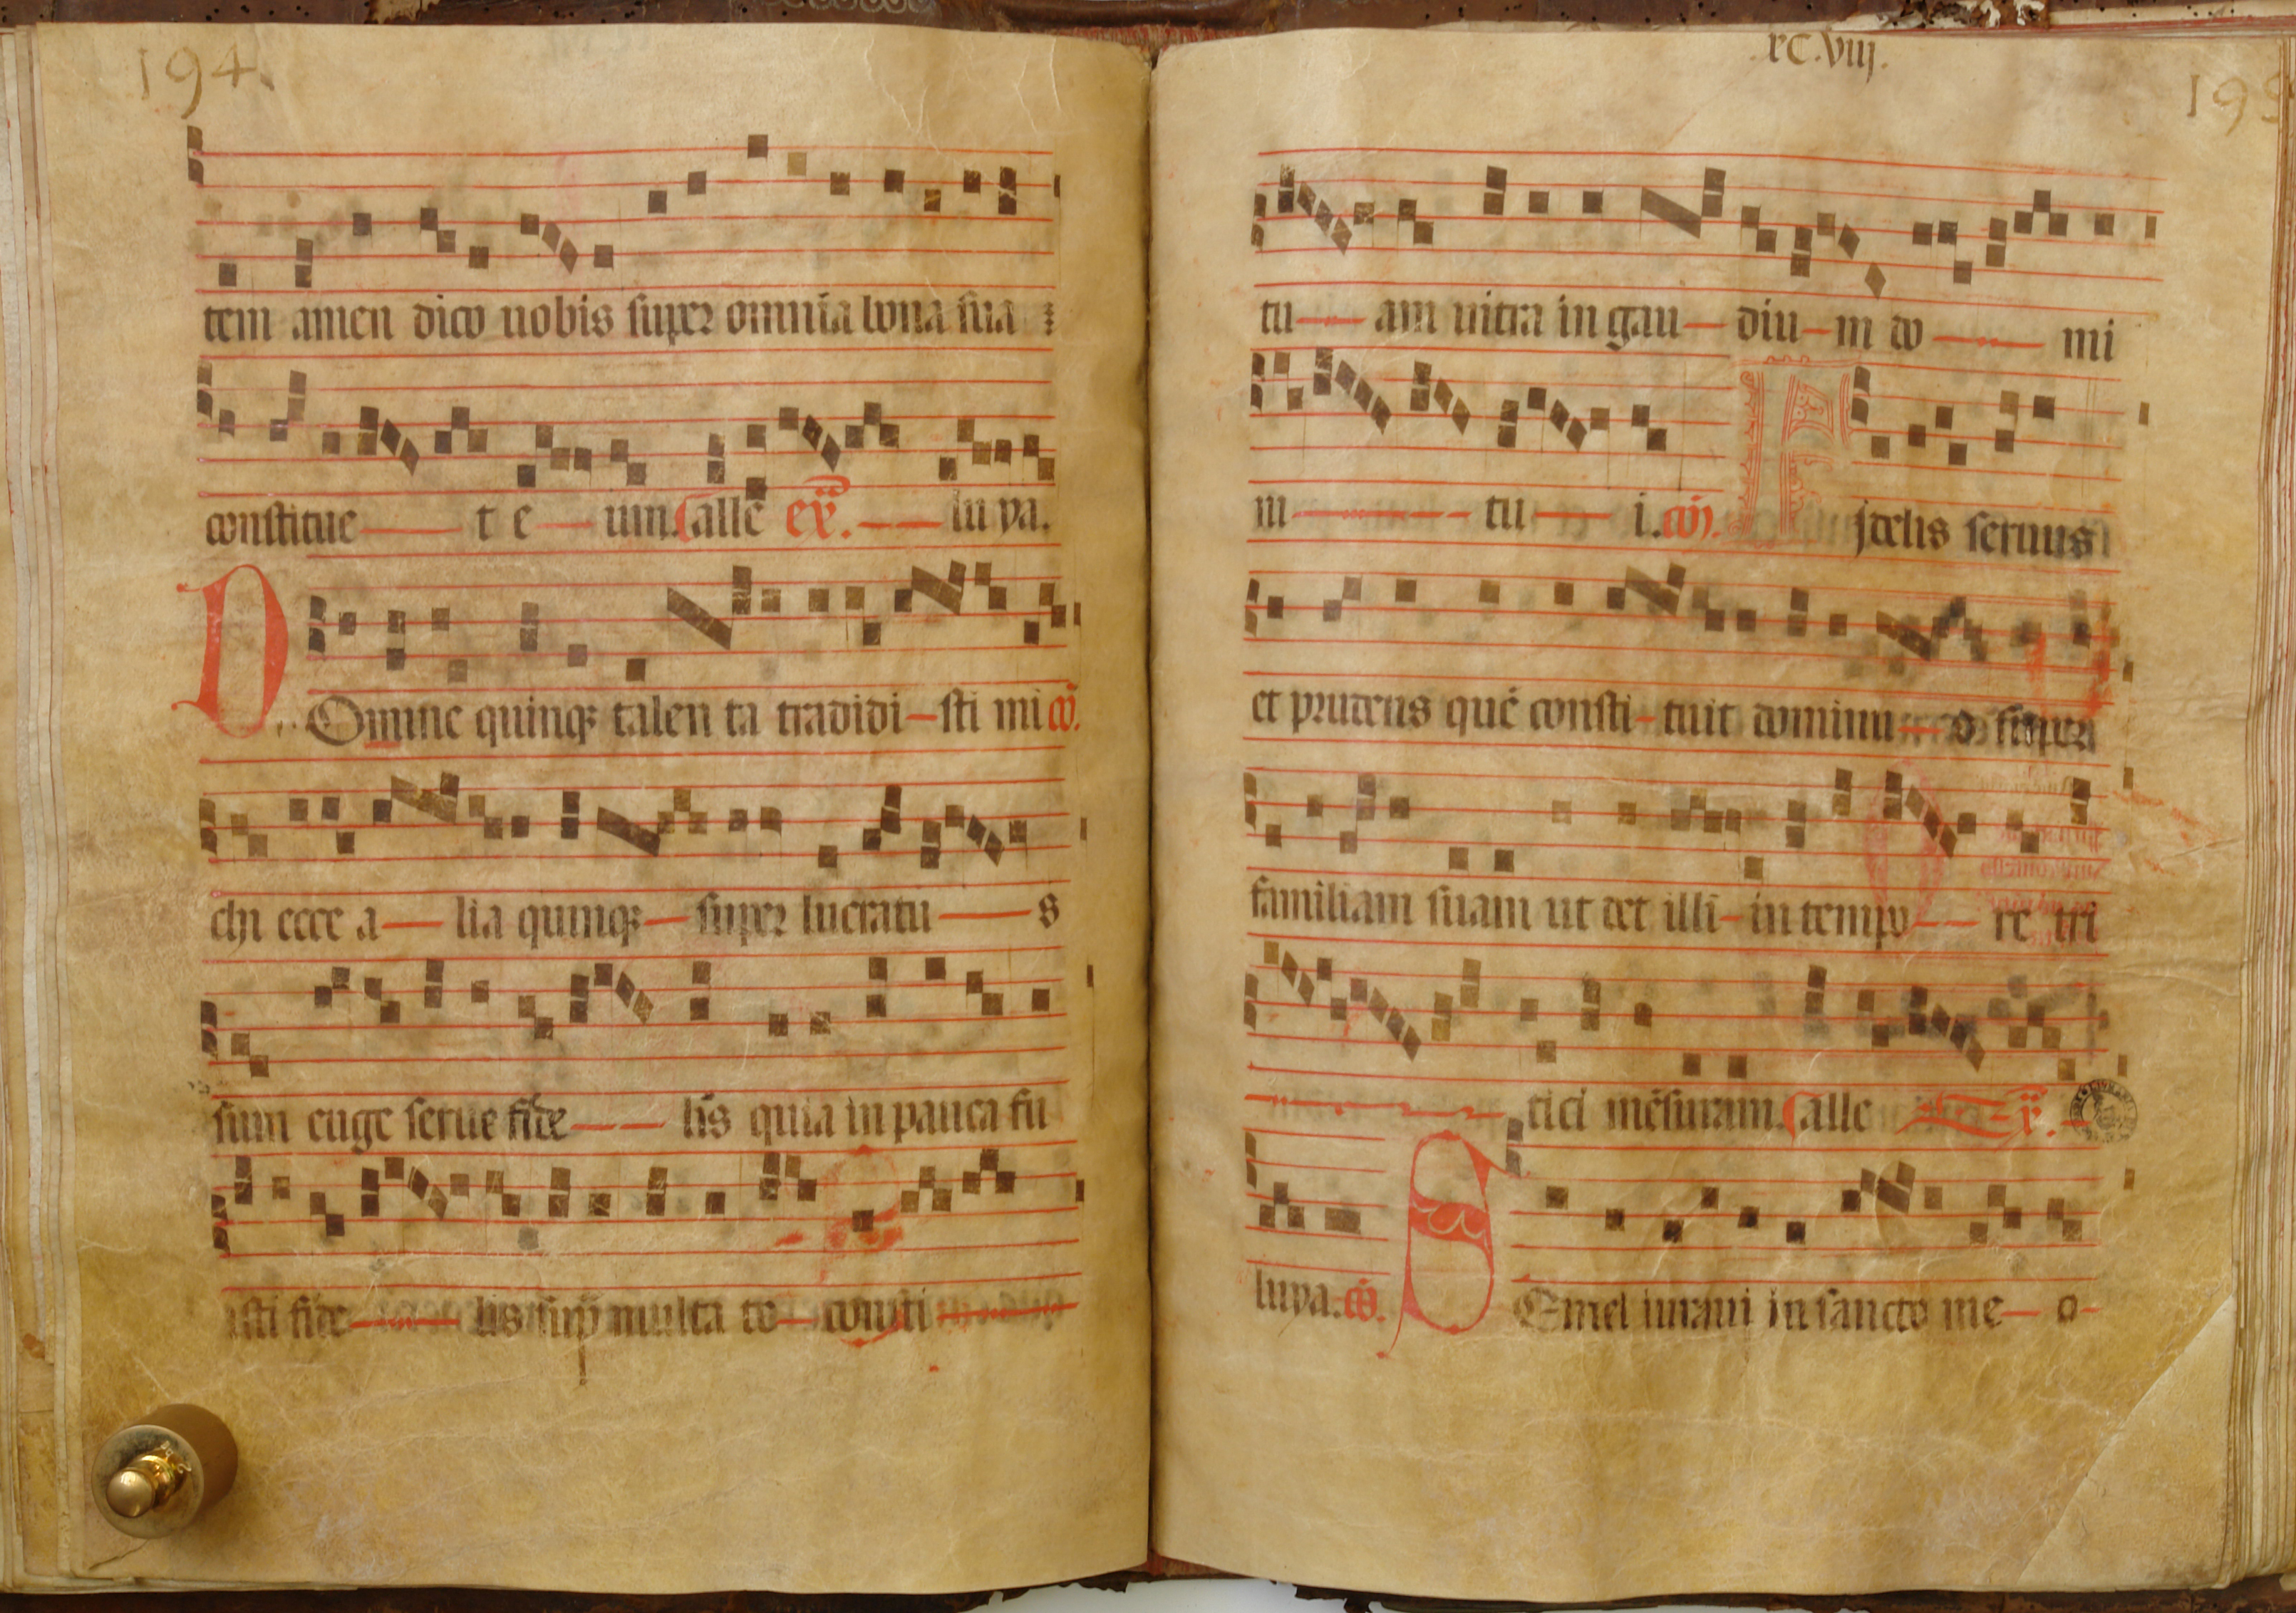 194
tem amen dico uobis super omnia bona sua
constitue t e um. alle eṽ. lu ya.
DOmine quinqꝫ talen ta tradidi sti mi cõ.
chi ecce a lia quinqꝫ super lucratu s
sum euge serue fide lis quia in pauca fu
isti fide lis sup̃ multa te consti
rC.viij.
195
tu am intra in gau diu m do mi
ni tu i. cõ. Fidelis seruus
et prudens quē consti tuit dominu s super
familiam suam ut det illi in tempo re tri
tici mēsuram. alle ṽ.
luya. cõ. SEmel iuraui in sancto me o